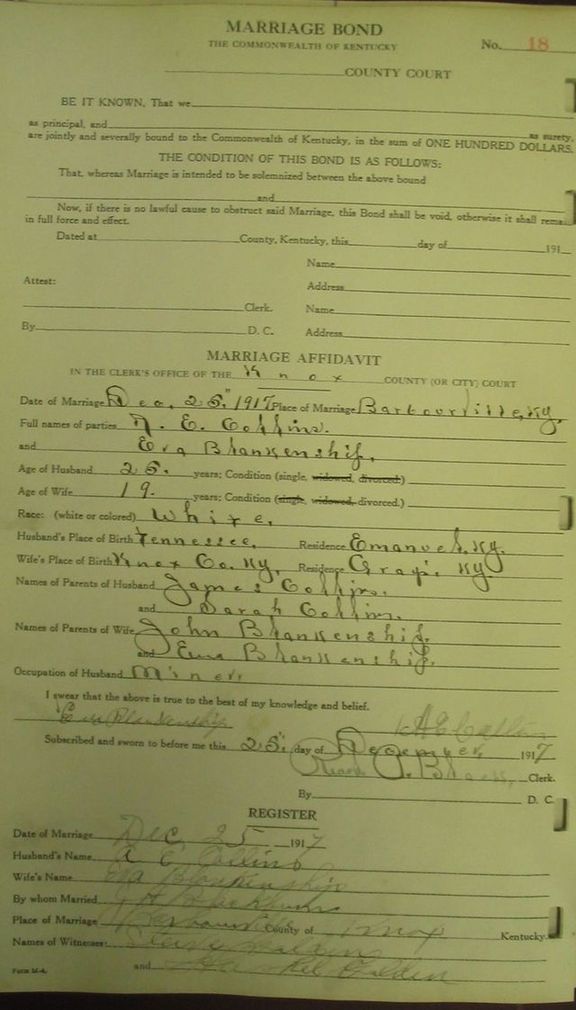 MARRIAGE BOND
No. 18
THE COMMONWEALTH OF KENTUCKY
COUNTY COURT
BE IT KNOWN, That we
as principal, and as surety,
are jointly and severally bound to the Commonwealth of Kentucky, in the sum of ONE HUNDRED DOLLARS.
THE CONDITION OF THIS BOND IS AS FOLLOWS:
That, whereas Marriage is intended to be solemnized between the above bound
and
Now, if there is no lawful cause to obstruct said Marriage, this Bond shall be void, otherwise it shall rema
in full force and effect.
Dated at County, Kentucky, this day of 191
Name
Attest: Address
Clerk. Name
By D. C. Address
MARRIAGE AFFIDAVIT
IN THE CLERK'S OFFICE OF THE Knox COUNTY (OR CITY) COURT
Date of Marriage Dec. 25" 1917 Place of Marriage Barbourville, Ky.
Full names of parties A. E. Collins.
and Eva Blankenship.
Age of Husband 25. years; Condition (single, widowed, divorced.)
Age of Wife 19. years; Condition (single, widowed, divorced.)
Race: (white or colored) White.
Husband's Place of Birth Tennessee. Residence Emanuel, Ky.
Wife's Place of Birth Knox Co. Ky. Residence Gray, Ky.
Names of Parents of Husband James Collins.
and Sarah Collins.
Names of Parents of Wife John Blankenship.
and Blankenship.
Occupation of Husband Miner.
I swear that the above is true to the best of my knowledge and belief.
Eva Blankenship A E Collins
Subscribed and sworn to before me this 25" day of December, 1917
Clerk.
By D. C.
REGISTER
Date of Marriage Dec 25 1917
Husband's Name A E Collins
Wife's Name Eva Blankenship
By whom Married
Place of Marriage Barbourville County of Knox Kentucky.
Names of Witnesses:
and Golden
Form M-4.